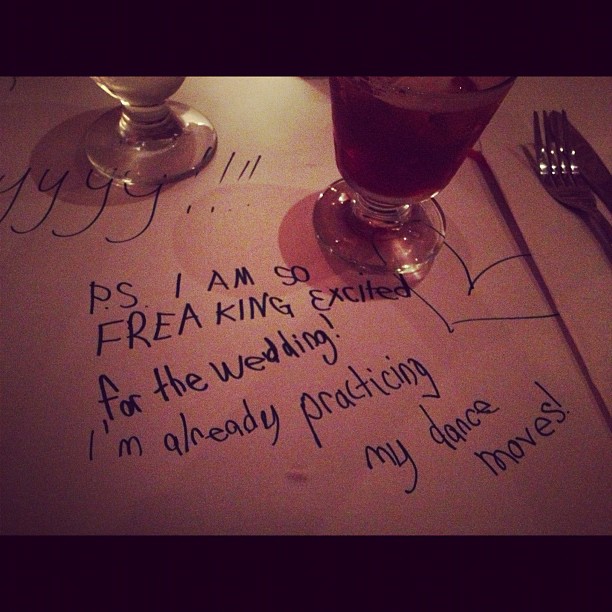 yyyy!!!
P.S. I AM SO
FREAKING Excited
for the wedding!
I'm already practicing
my dance
moves!